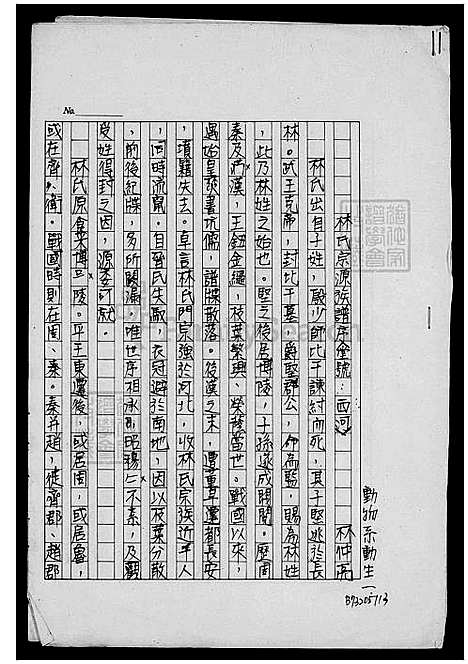 11
No.
林氏宗源族譜序 堂號：西河
林仲亮
動物系動生一
B73205713
林氏出自子姓，殷少師比干諫紂而死，其子堅逃於長
林。武王克商，封比干墓，爵堅郡公，命為堅，賜為林姓
，此乃林姓之始也。堅之後居博陵，子孫遂成閥閱。歷周
秦及炎漢，王鈕金縷，枝葉繁興、榮陵當世。戰國以來，
遇始皇焚書坑儒，譜牒散落。後漢之末，遭董卓遷都長安
，項籍失去。卓言林氏門宗強於河北，收林氏宗族近千人
，同時流竄。自晉氏失馭，衣冠避於南地，因以枝葉分散
，前後紀牒，多所闕漏，唯世序相承，昭穆不紊，及
受姓得封之因，源委可徵。
林氏原食菜博陵。平王東遷後，或居周，或居魯，
或在齊、衛。戰國時則在周、秦。秦并趙，徙齊郡、趙郡